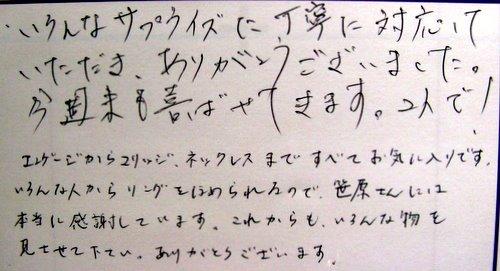 いろんなサプライズに丁寧に対応して
いただき、ありがとうございました。
今週末も喜ばせてきます。2人で！
エンゲージからマリッジ、ネックレスまですべてお気に入りです。
いろんな人からリングをほめられるので、笹原さんには
本当に感謝しています。これからも、いろんな物を
見せて下さい。ありがとうございます。